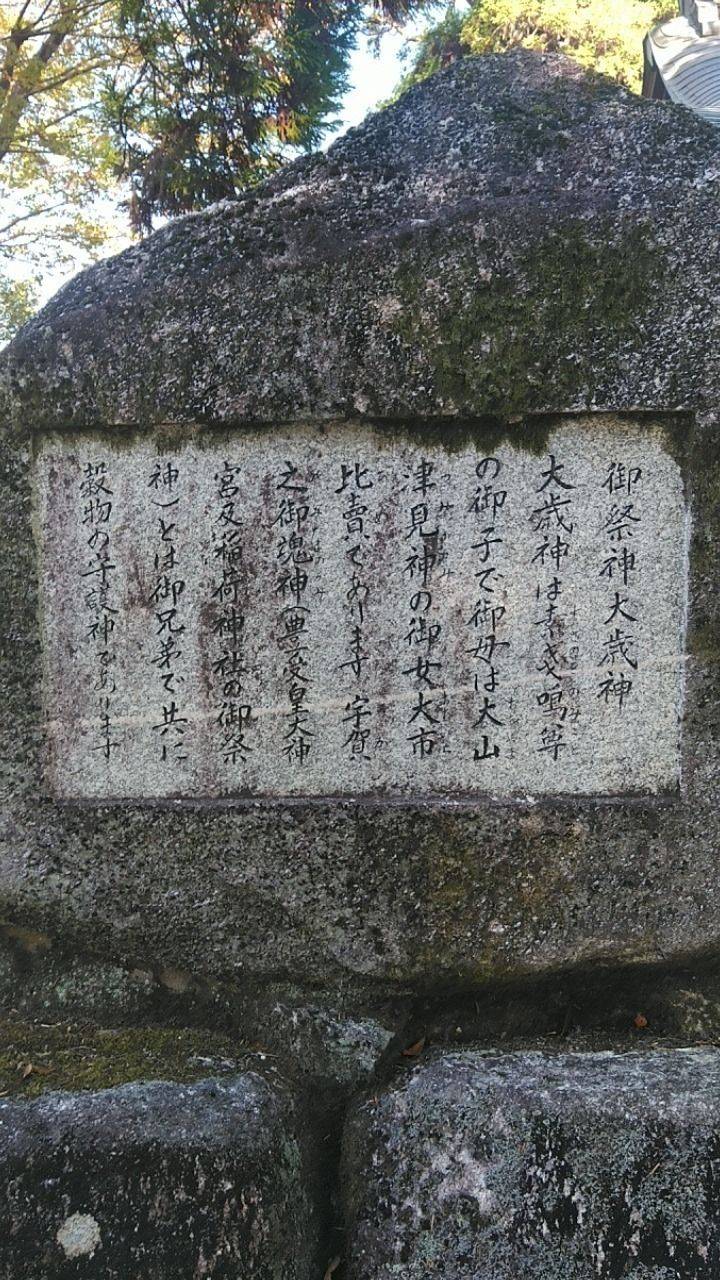 御祭神大歳神
大歳神は素戔嗚尊
の御子で御母は大山
津見神の御女大市
比賣であります 宇賀
之御魂神(豊受皇大神
宮及稲荷神社の御祭
神)とは御兄弟で共に
穀物の守護神であります